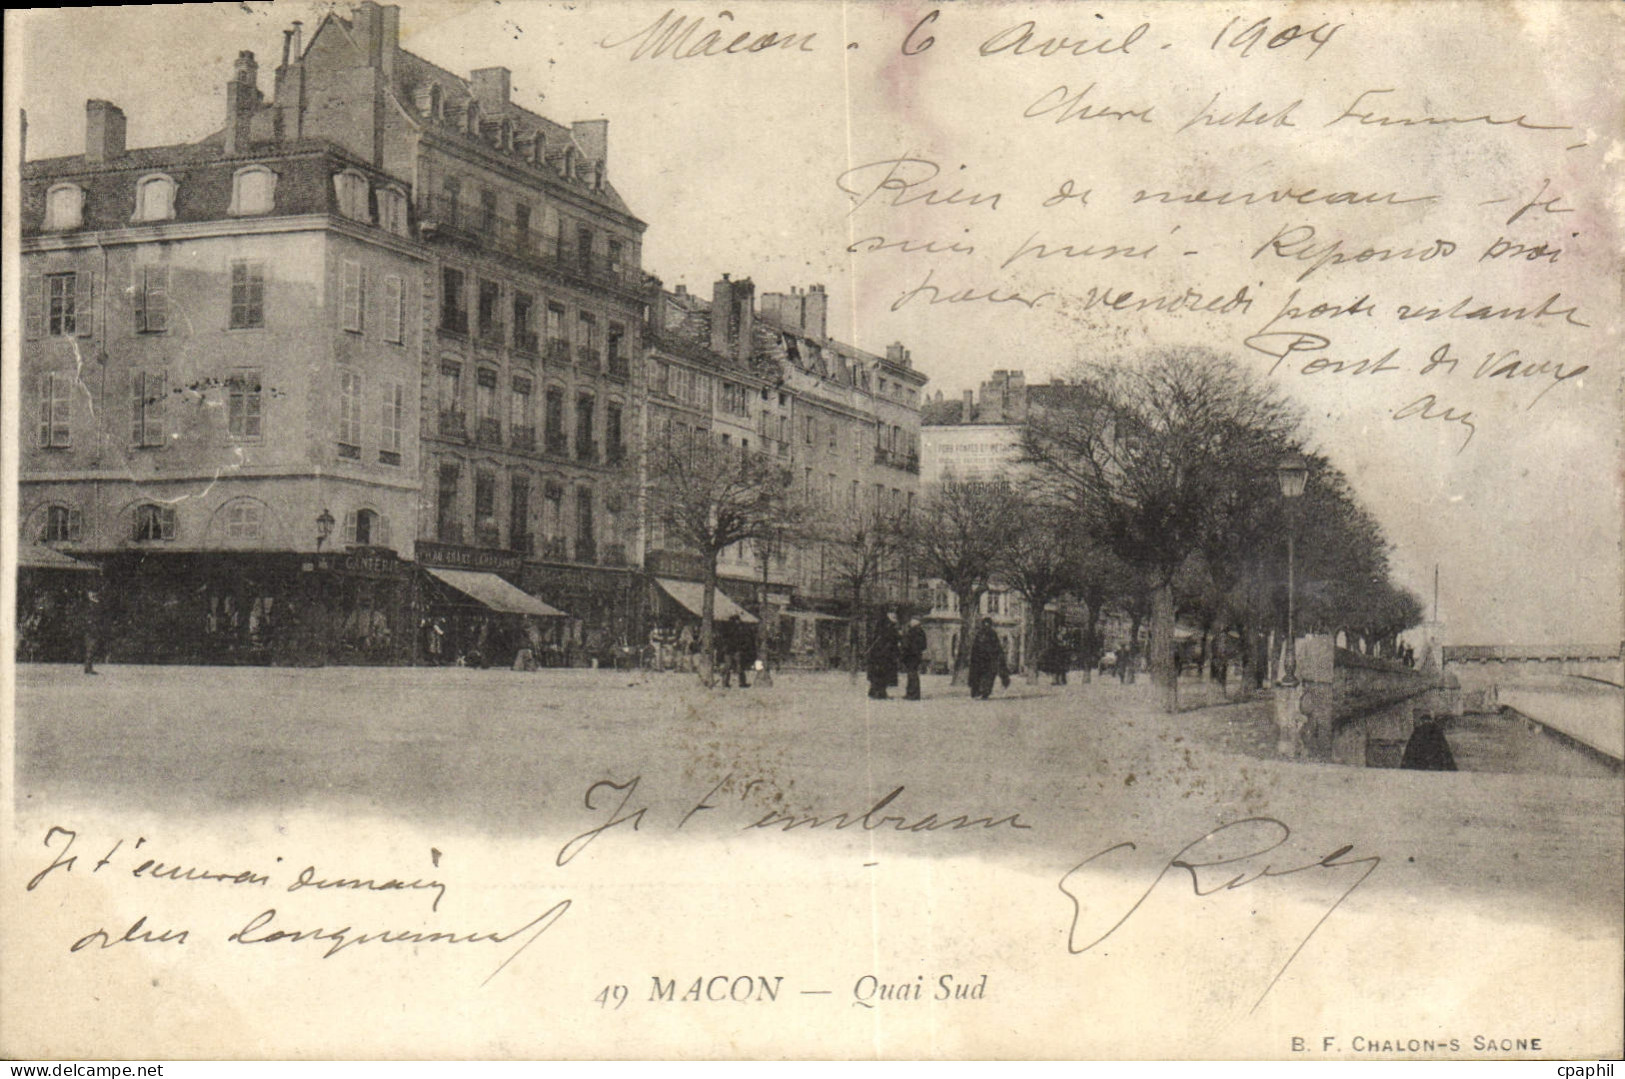 Mâcon - 6 Avril - 1904
Chere petite Femme -
Rien de nouveau - Je
suis pressé - Reponds moi
pour vendredi poste restante
Pont de Vaux
Ain
GANTERIE
Je t'embrasse
Je t'ecrirai demain
plus longuement
49 MACON — Quai Sud
B. F. CHALON-S SAONE
cpaphil